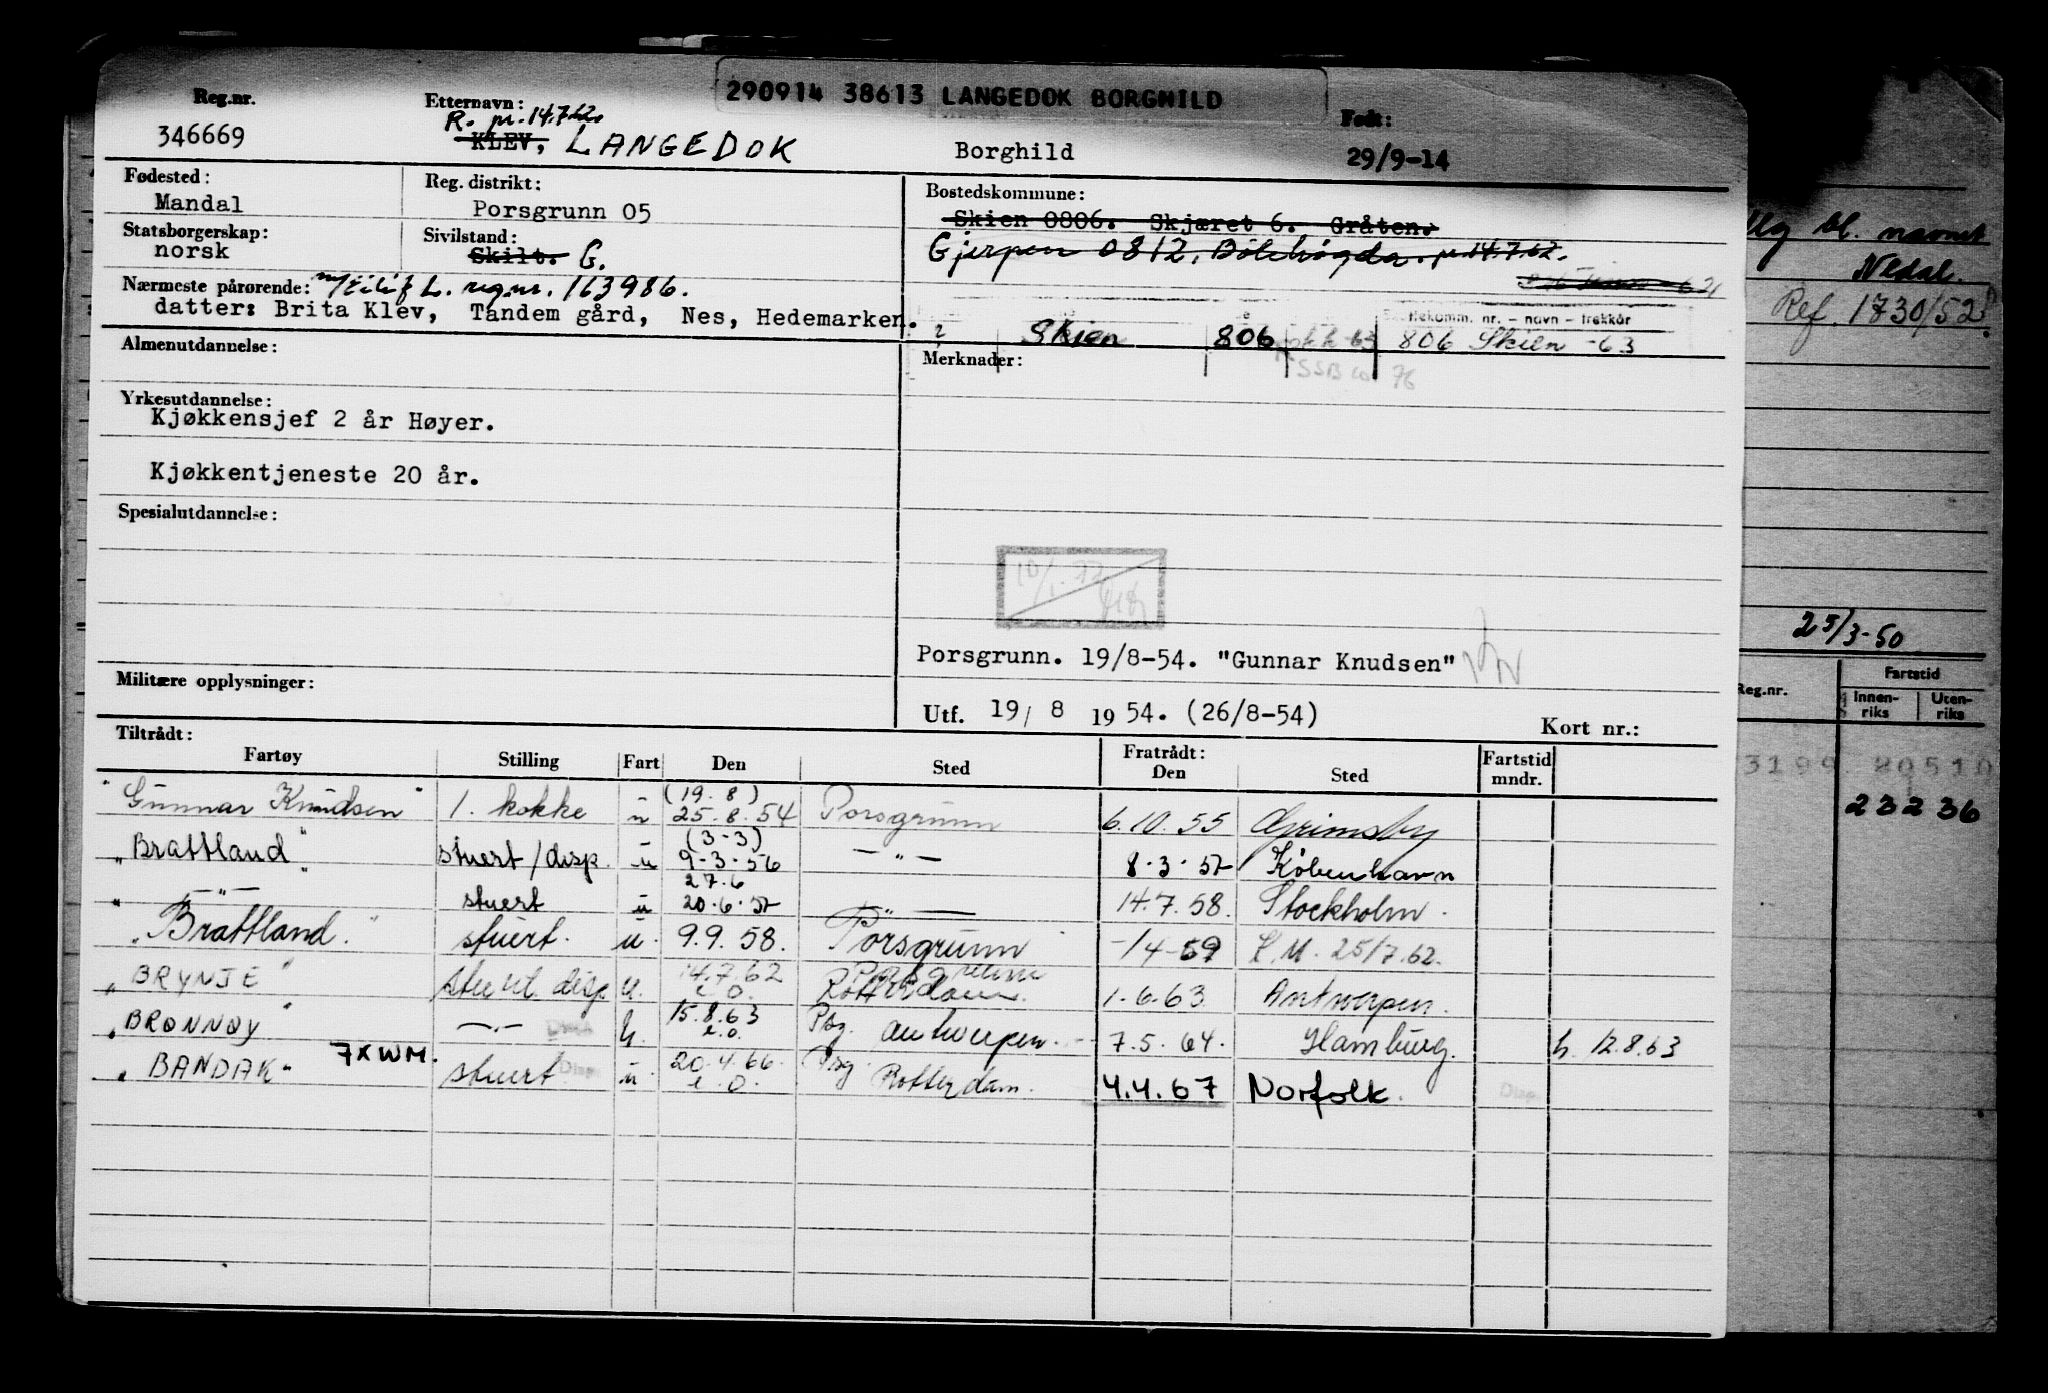 290914 38613 LANGEDOK BORGHILD
Reg.nr. Etternavn: Født:
R. pr. 14.7.62
346669 KLEV, LANGEDOK Borghild 29/9-14
Fødested: Reg. distrikt: Bostedskommune:
Mandal Porsgrunn 05 Skien 0806. Skjæret 6. Gråten.
Statsborgerskap: Sivilstand:
norsk Skilt. G. Gjerpen 0812, Bölehögda. pr. 14.7.62.
Nærmeste pårørende: m/Eilif L. reg.nr. 163986.
datter: Brita Klev, Tandem gård, Nes, Hedemarken.
Hekomm. nr. – navn – trekkår
Skien 806 806 Skien -63
Almenutdannelse: Merknader:
SSB 76
Yrkesutdannelse:
Kjøkkensjef 2 år Høyer.
Kjøkkentjeneste 20 år.
Spesialutdannelse:
10/1.72
Porsgrunn. 19/8-54. "Gunnar Knudsen"
Militære opplysninger:
Utf. 19/ 8 1954. (26/8-54) Kort nr.:
Tiltrådt: Fratrådt: Fartstid
Fartøy Stilling Fart Den Sted Den Sted mndr.
"Gunnar Knudsen" 1. kokke u (19.8) 25.8.54 Porsgrunn 6.10.55 Grimsby
"Brattland" stuert/disp. u (3-3) 9-3-56 — " — 8.3.57 København
" — " — stuert u 27.6 20.6.57 — " — 14.7.58. Stockholm.
"Brattland." stuert. u. 9.9.58. Porsgrunn -/4-59 S.M. 25/7.62.
"BRYNJE" stuert disp u. 14.7.62 e.o. Rotterdam. 1.6.63 Antwerpen.
"BRØNNØY" —.— Disp 15.8.63 e.o. Psg. Antwerpen. 7.5.64. Hamburg. h. 12.8.63
"BANDAK" 7XWM. stuert Disp u. 20.4.66. e.o. Psg Rotterdam. 4.4.67 Norfolk. Disp.
bl. navnet
Nedal.
Ref. 1730/52
25/3-50
Reg.nr. Fartstid
Innen- Uten-
riks riks
3199 80510
23236